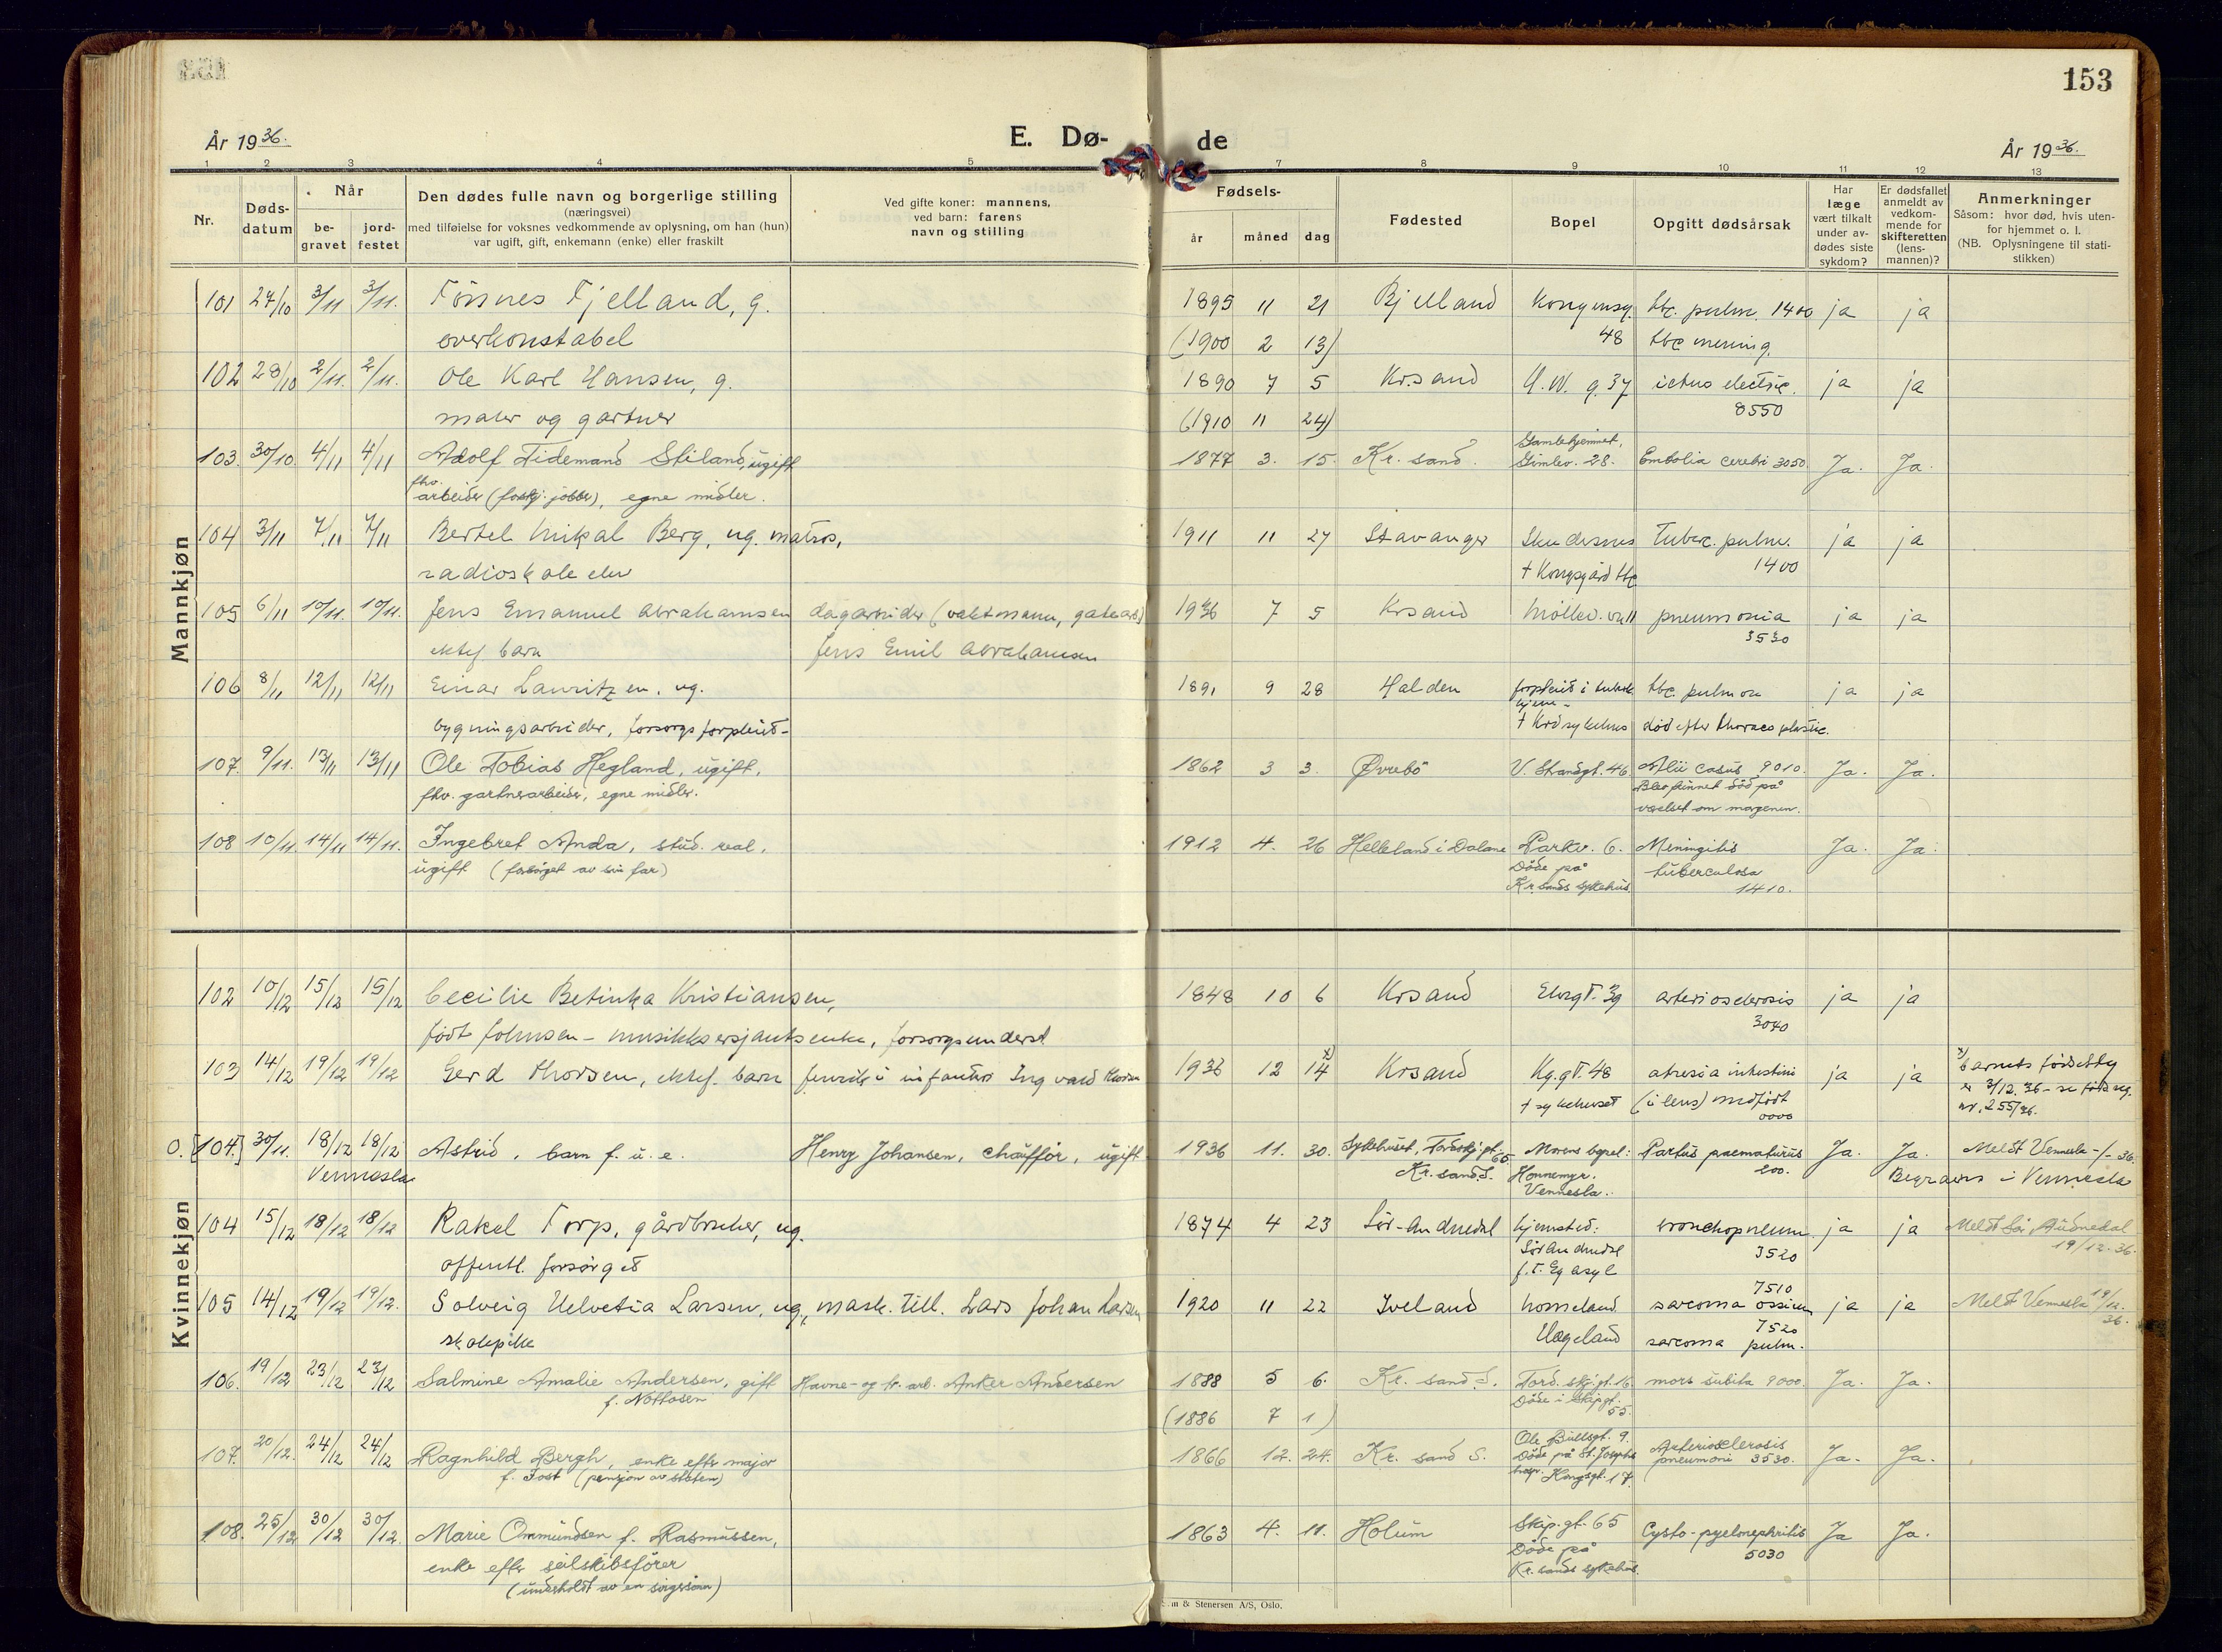 153
År 1936.
E. Dø-de
År 1936.
1 2 3 4 5 7 8 9 10 11 12 13
Nr.
Døds-datum
Når
be-gravet
jord-festet
Den dødes fulle navn og borgerlige stilling
(næringsvei)
med tilføielse for voksnes vedkommende av oplysning, om han (hun)
var ugift, gift, enkemann (enke) eller fraskilt
Ved gifte koner: mannens,
ved barn: farens
navn og stilling
Fødsels-
år måned dag
Fødested
Bopel
Opgitt dødsårsak
Har læge vært tilkalt under av-dødes siste sykdom?
Er dødsfallet anmeldt av vedkom-mende for skifteretten (lens-mannen)?
Anmerkninger
Såsom: hvor død, hvis uten-
for hjemmet o. l.
(NB. Oplysningene til stati-
stikken)
Mannkjøn
101 27/10 3/11 3/11. Tönnes Fjelland, g. 1895 11 21 Bjelland Kongensg. tbc. pulm. 1400 ja ja
overkonstabel (1900 2 13) 48 tbc mening.
102 28/10 2/11. 2/11. Ole Karl Hansen, g. 1890 7 5 Kr.sand H.W. g. 37 ictus electric. ja ja
maler og gartner (1910 11 24) 8550
103. 30/10. 4/11 4/11 Adolf Tidemand Stiland, ugift 1877 3. 15. Kr. sand. Gamlehjemmet, Gimlev. 28. Embolia cerebri 3050. Ja. Ja.
fhv. arbeider (forskj. jobber), egne midler.
104 3/11 7/11 7/11 Bertel Mikal Berg, ug. matros, 1911 11 27 Stavanger Skudesnes Tuberc. pulm. ja ja
radioskole elev † Kongsgård tbc 1400
105 6/11 10/11. 10/11. Jens Emanuel Abrahamsen dagarbeider (vaktmann, gatearb) 1936 7 5 Krsand Möllev. pneumonia ja ja
ektef barn Jens Emil Abrahamsen 3530
106 8/11 12/11 12/11 Einar Lauritzen, ug. 1891 9 28 Halden forpleid i tuberk. hjem - tbc. pulmon ja ja
bygningsarbeider, forsorgsforpleid- † Krsd sykehus död efter thoracoplastic.
107. 9/11. 13/11 13/11 Ole Tobias Hegland, ugift, 1862 3 3. Øvrebö V. Strandgt. 46 Alii casus 9010. Ja. Ja.
fhv. gartnerarbeider, egne midler. Blev funnet död på
værelset om morgenen.
108 10/11. 14/11 14/11. Ingebret Anda, stud. real, 1912 4. 26 Helleland i Dalane Parkv. 6. Meningitis Ja. Ja.
ugift (forsörget av sin far) Döde på tuberculosa
Kr.sands sykehus 1410.
Kvinnekjøn
102 10/12 15/12 15/12 Cecilie Betinka Kristiansen, 1848 10 6 Krsand Elvegt. 39 arteriosclerosis ja ja
födt Johnsen - musikksersjants enke, forsorgsunderst. 3040
103 14/12 19/12 19/12 Gerd Thorsen, ektef. barn fenrik i infanteri Ingvard Thorsen 1936 12 14 x) Krsand Kg.gt. 48 atresia intestini ja ja x) barnets födselsdag
† sykehuset (ileus) medfödt er 3/12.36 - se föds.reg.
0000 nr. 255/36.
0. [104.] 30/11. 18/12 18/12 Astrid, barn f. u. e. Henry Johansen, chauffør, ugift 1936 11. 30. Sykehuset, Tordskj.gt. 65 Morens bopel: Partus præmaturus Ja. Ja. Meldt Vennesla -/- 36.
Vennesla Kr.sand S. Honnemyr. 200. Begraves i Vennesla
Vennesla.
104 15/12 18/12 18/12 Rakel Torp, gårdbruker, ug. 1874 4 23 Sör-Audnedal hjemsted: bronchopneum. ja ja Meldt Sör Audnedal
offentl. forsörget Sör Audnedal 3520 19/12-36.
f.t. Eg asyl
105 14/12 19/12 19/12. Solveig Helvetia Larsen, ug., mask. till. Lars Johan Larsen 1920 11 22 Iveland homeland 7510 sarcoma ossium ja ja Meldt Vennesla 19/12. 36.
skolepike Hægeland 7520 sarcoma pulm.
106. 19/12 23/12 23/12 Salmine Amalie Andersen, gift Havne- og tr. arb. Anker Andersen 1888 5 6. Kr. sand S. Tord. skj.gt. 16 mors subita 9000. Ja. Ja.
f. Nottosen (1886 7 1) Döde i Skipgt. 55.
107. 20/12. 24/12 24/12 Ragnhild Bergh, enke efter major 1866 12. 24. Kr. sand S. Ole Bullsgt. 9. Arteriosclerosis Ja. Ja.
f. Fost (pensjon av staten) Döde på St. Josephs hosp. Kongsgt. 17. pneumoni 3530.
108. 25/12 30/12 30/12. Marie Ommundsen f. Rasmussen, 1863 4. 11. Holum Skip.gt. 65 Cysto-pyelonephritis Ja Ja.
enke efter seilskibsförer Döde på 5030
(underholdt av en svigersönn) Kr.sands sykehus.
& Stenersen A/S, Oslo.